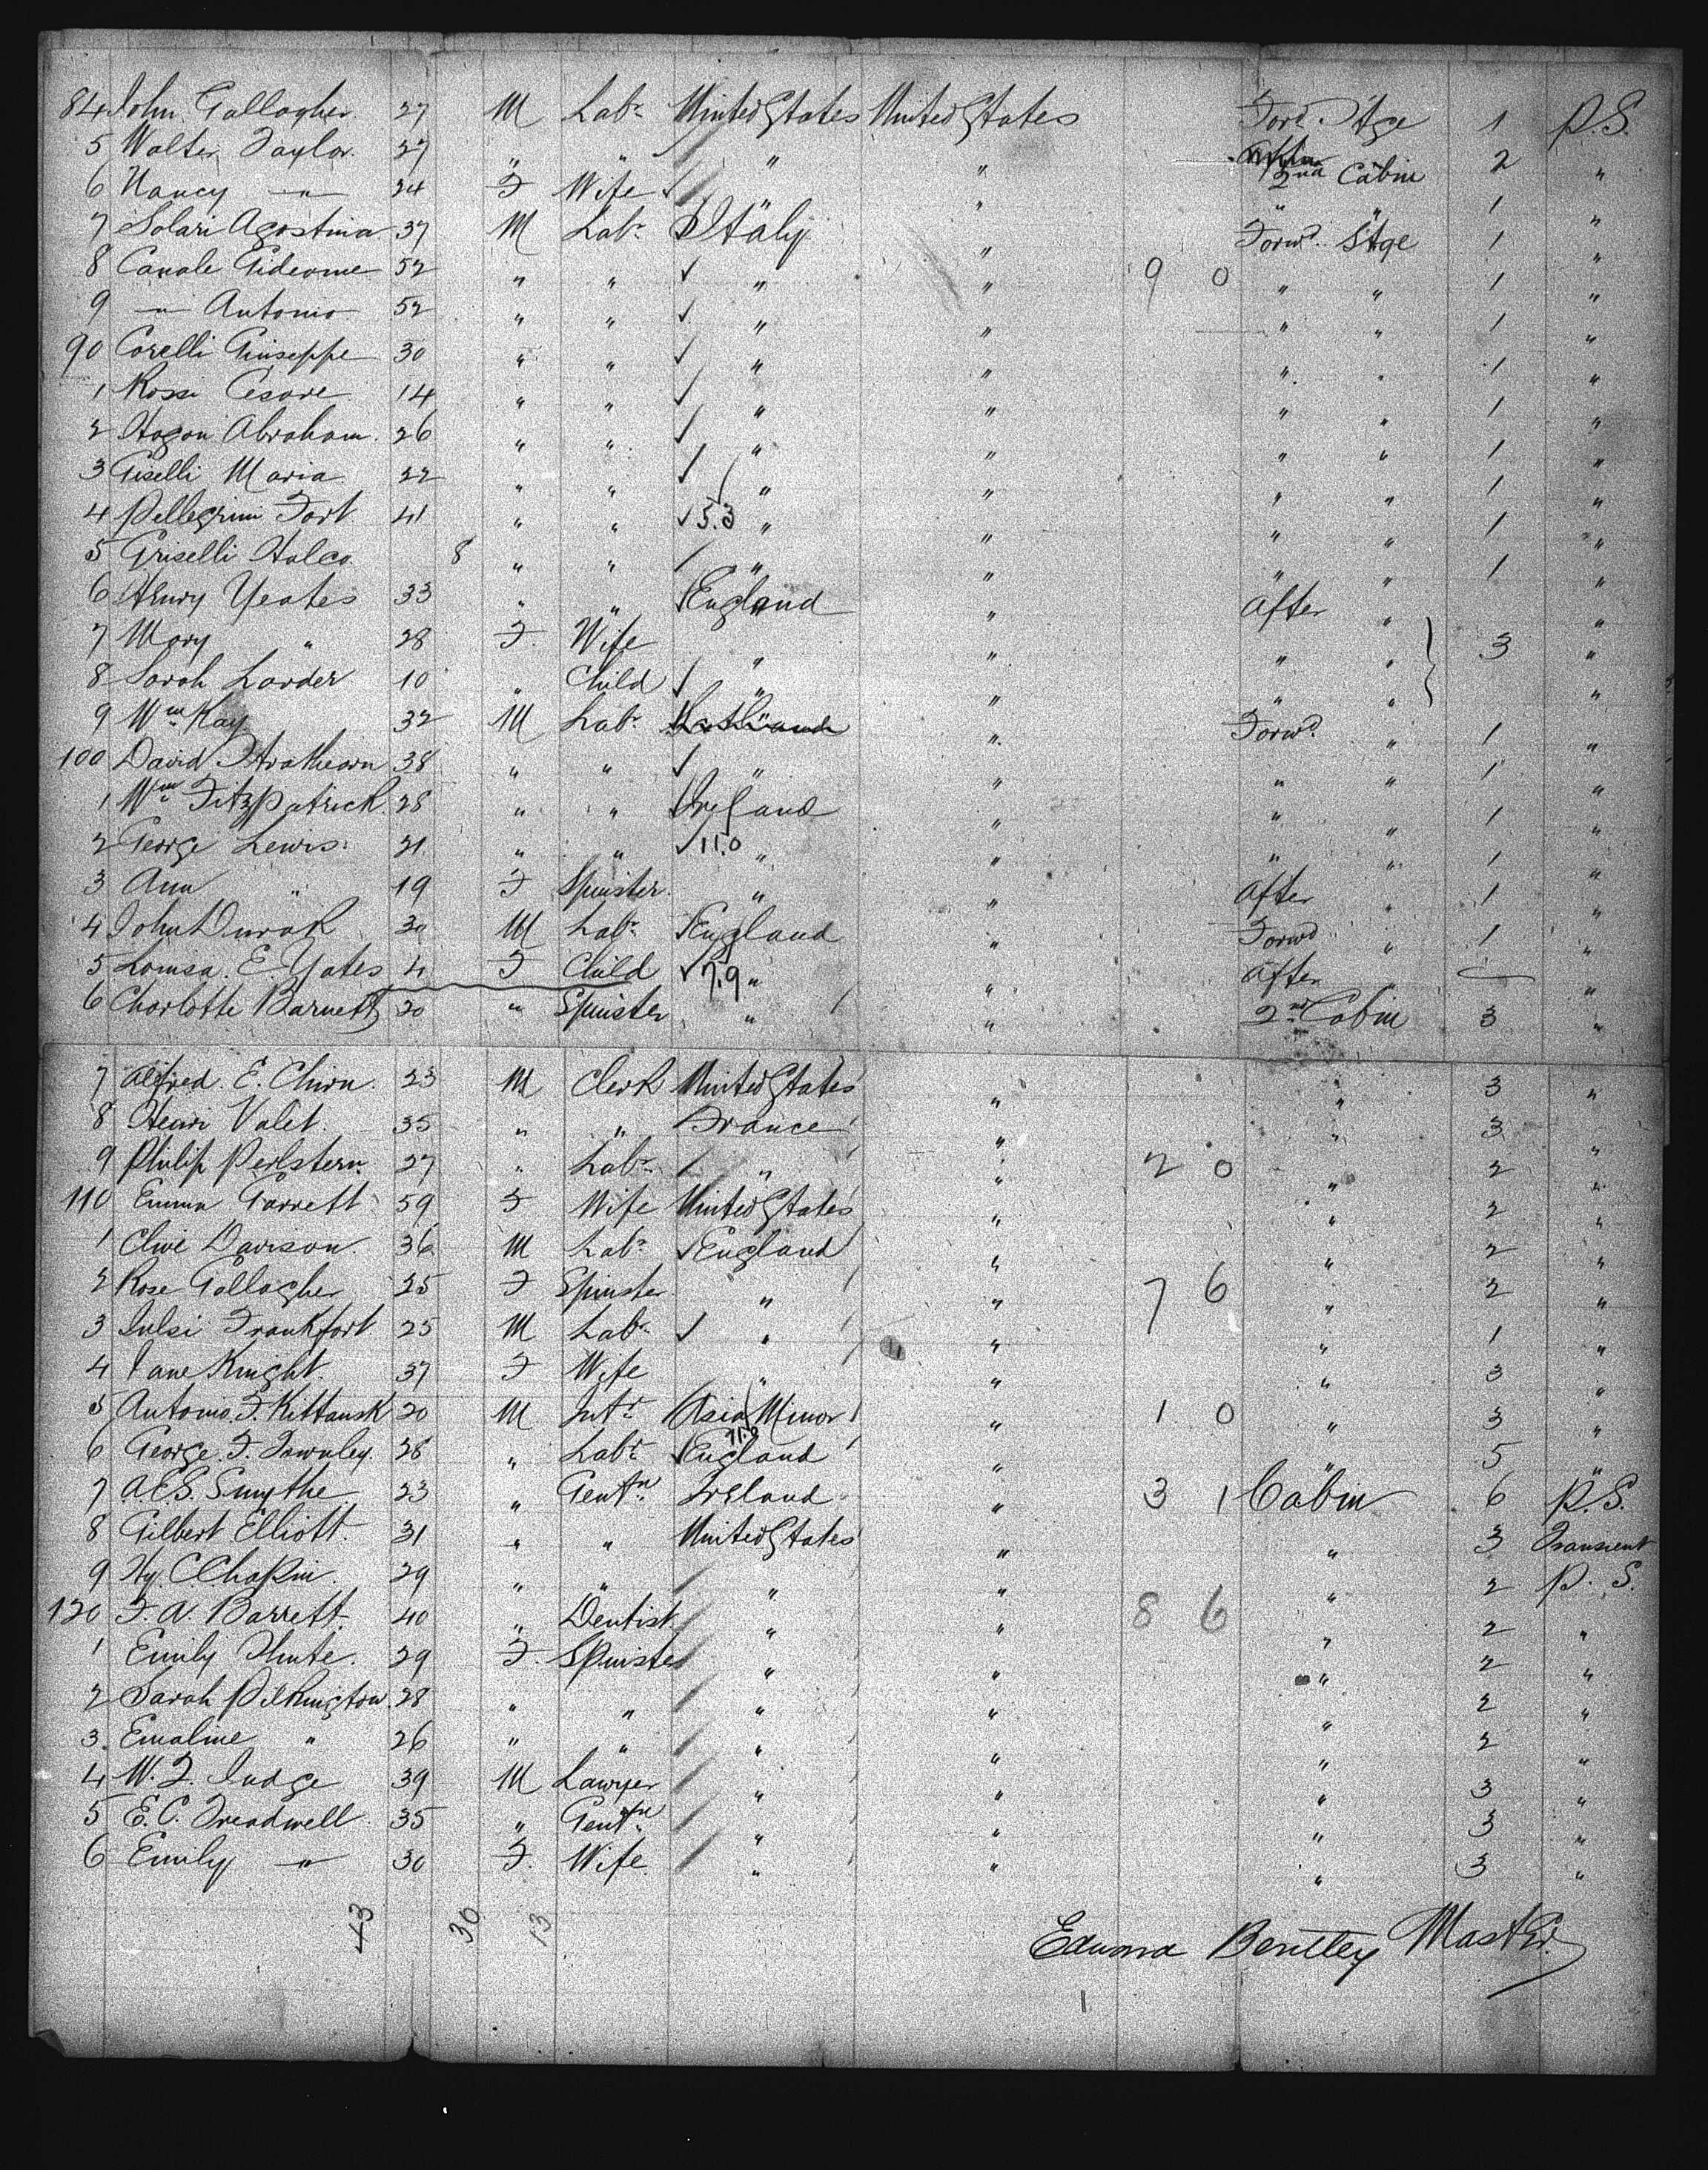 84 John Gallagher 27 M Labr United States United States Ford Stge 1 P.S.
5 Walter Taylor 27 " " " " 2nd Cabin 2 "
6 Nancy — " — 24 F Wife ✓ " " " " 1 "
7 Solari Agostina 37 M Labr Italy " Forwd. Stge 1 "
8 Canale Gideome 52 " " ✓ " " 9 0 " " 1 "
9 — " — Antonio 52 " " ✓ " " " " 1 "
90 Corelli Giuseppe 30 " " ✓ " " " " 1 "
1 Rossi Cesare 14 " " ✓ " " " " 1 "
2 Hogan Abraham. 26 " " ✓ " " " " 1 "
3 Giselli Maria 22 " " ✓ " " " " 1 "
4 Pellegrini Fort 41 " " ✓ 5.3 " " " " 1 "
5 Griselli Halco. 8 " " " " " " 1 "
6 Henry Yeates 33 " " ✓ England " After "
7 Mary " 28 F Wife " " " " 3 "
8 Sarah Larder 10 " Child ✓ " " " " "
9 Wm Kay 32 M Labr " Forwd. " 1 "
100 David Strathearn 38 " " ✓ " " " " 1 "
1 Wm Fitzpatrick. 28 " " ✓ Ireland " " " 1 "
2 George Lewis. 21 " " ✓ 11.0 " " " " 1 "
3 Ann " 19 F Spinster. " " After " 1 "
4 John Durak 30 M Labr ✓ England " Forwd " 1 "
5 Louisa. E. Yates 4 F Child ✓ 7.9 " " After " "
6 Charlotte Barnett 20 " Spinster " " 2nd Cabin 3 "
7 Alfred. E. Chirn. 23 M Clerk United States " " 3 "
8 Henri Valet. 35 " " France " " 3 "
9 Philip Perlstern. 27 " Labr " " 2 0 " 2 "
110 Emma Garrett 59 F Wife United States " " 2 "
1 Clive Davison. 36 M Labr ✓ England " " 2 "
2 Rose Gallagher 25 F Spinster. " " 7 6 " 2 "
3 Julsi Frankfort 25 M Labr ✓ " " " 1 "
4 Jane Knight. 37 F Wife " " " 3 "
5 Antonio. F. Kittansk 20 M Intr Asia Minor " 1 0 " 3 "
6 George. F. Townley. 28 " Labr ✓ England 11.0 " " 5 "
7 A.E.S. Smythe 23 " Gentn Ireland " 3 1 Cabin 6 P.S.
8 Gilbert Elliott. 31 " " United States " " 3 Transient
9 Hy. C. Chapin. 29 " " " " " 2 P. S.
120 F. A. Barrett. 40 " Dentist " " 8 6 " 2 "
1 Emily 29 F. Spinster " " " 2 "
2 Sarah Pilkington. 28 " " " " " 2 "
3. Emaline " 26 " " " " " 2 "
4 W. Q. Judge 39 M Lawyer " " " 3 "
5 E. C. Treadwell 35 " Gentn " " " 3 "
6 Emily — " — 30 F. Wife " " " 3 "
43 30 13
Edward Bentley Master.
1